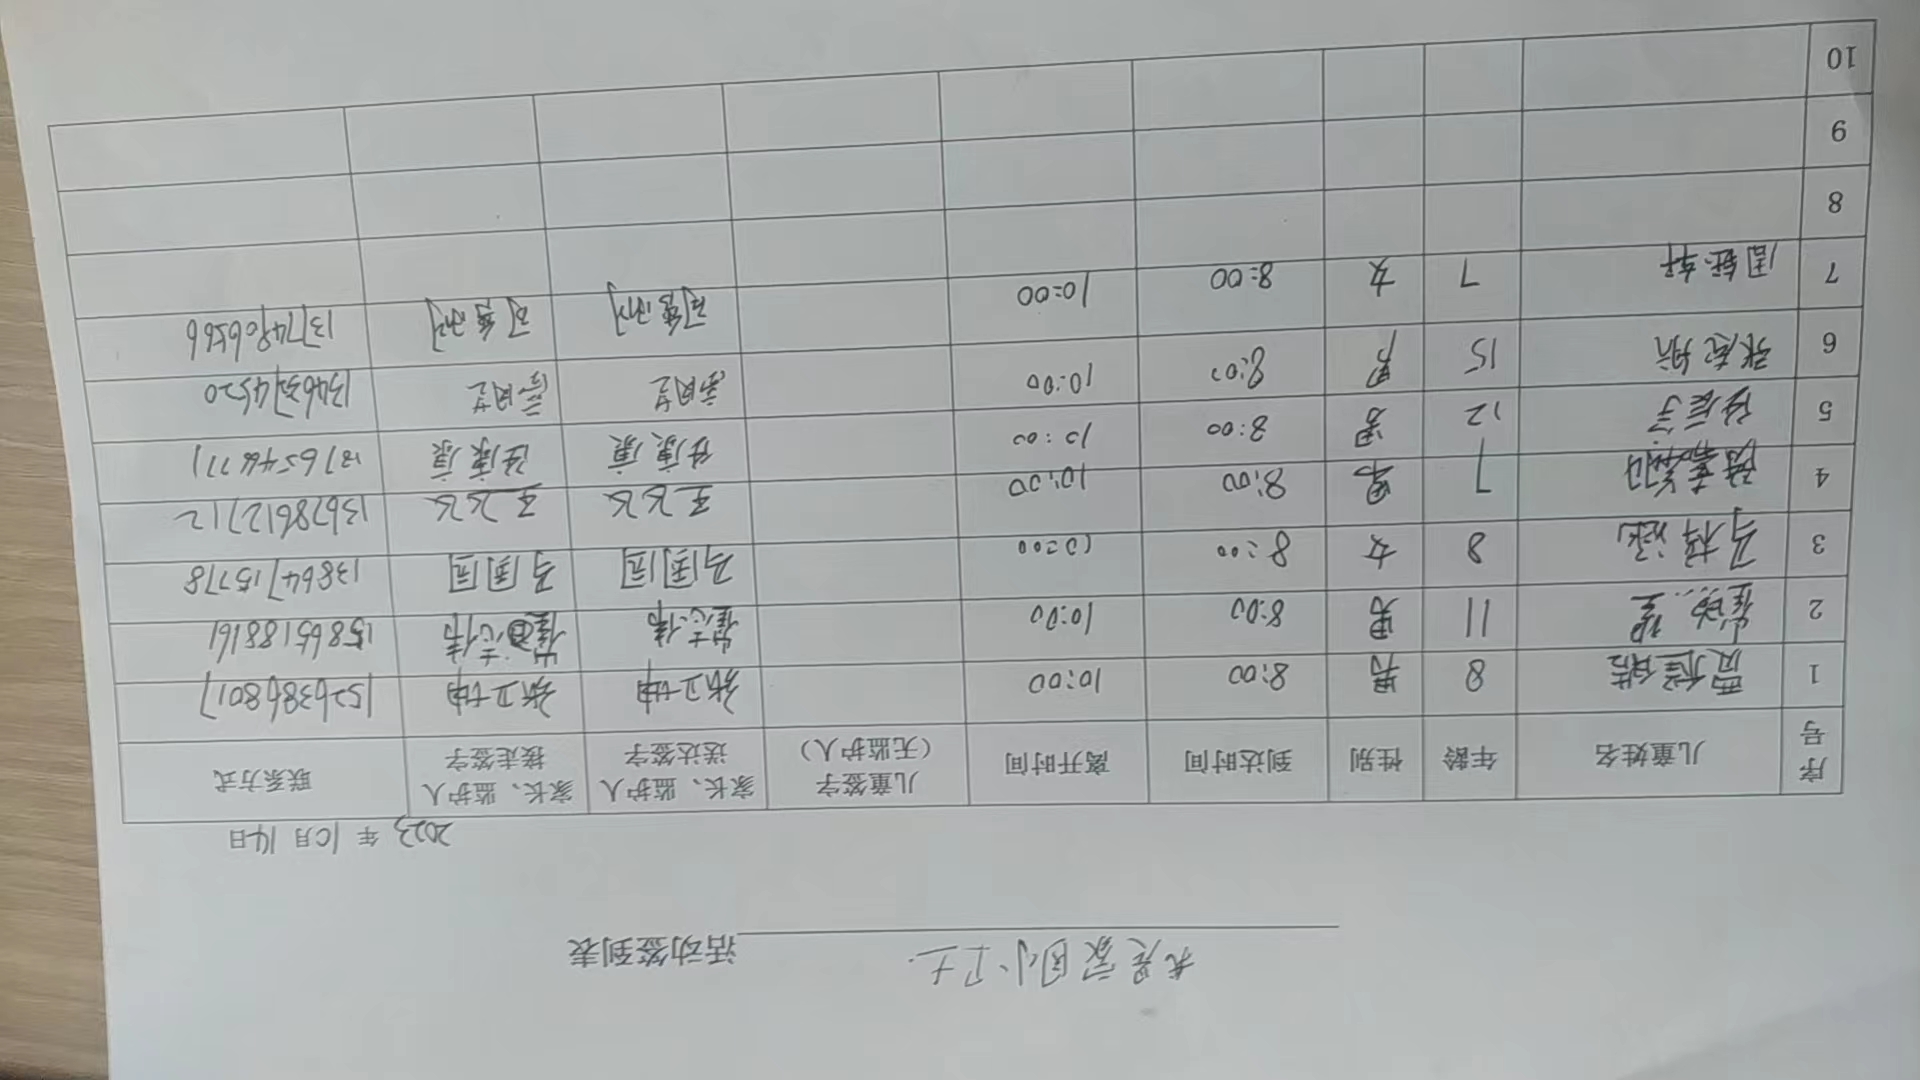 我是家园小卫士 活动签到表
2023年10月14日
序号 儿童姓名 年龄 性别 到达时间 离开时间 儿童签字（无监护人） 家长、监护人送达签字 家长、监护人接走签字 联系方式
1 8 男 8:00 10:00 张卫坤 张卫坤 15263868017
2 11 男 8:00 10:00 崔志伟 崔志伟 15865188161
3 马梓涵 8 女 8:00 10:00 马园园 马园园 13864715778
4 7 男 8:00 10:00 王飞飞 王飞飞 13678612712
5 12 男 8:00 10:00
6 张志航 15 男 8:00 10:00 13463974520
7 7 女 8:00 10:00 13774906566
8
9
10